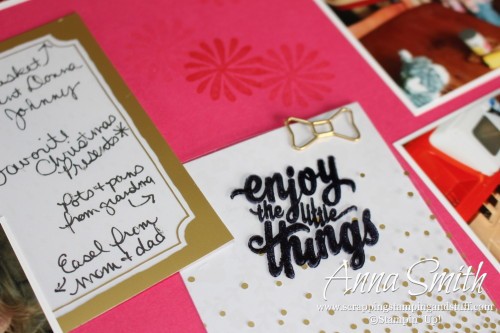 asket
nt Donna
Johnney
Favorite
Christmas
Presents*
Pots + pans
from grandma
Easel from
mom + dad
enjoy
the little
things
Anna Smith
www.scrappingstampingandstuff.com
©Stampin' Up!